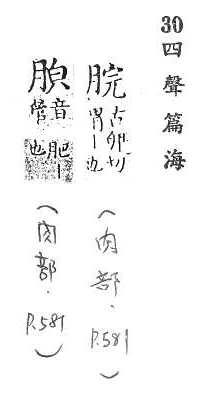 30 四聲篇海
脘 古卵切 胃丨也 (肉部.P.581)
音管 肥丨也 (肉部.P.581)